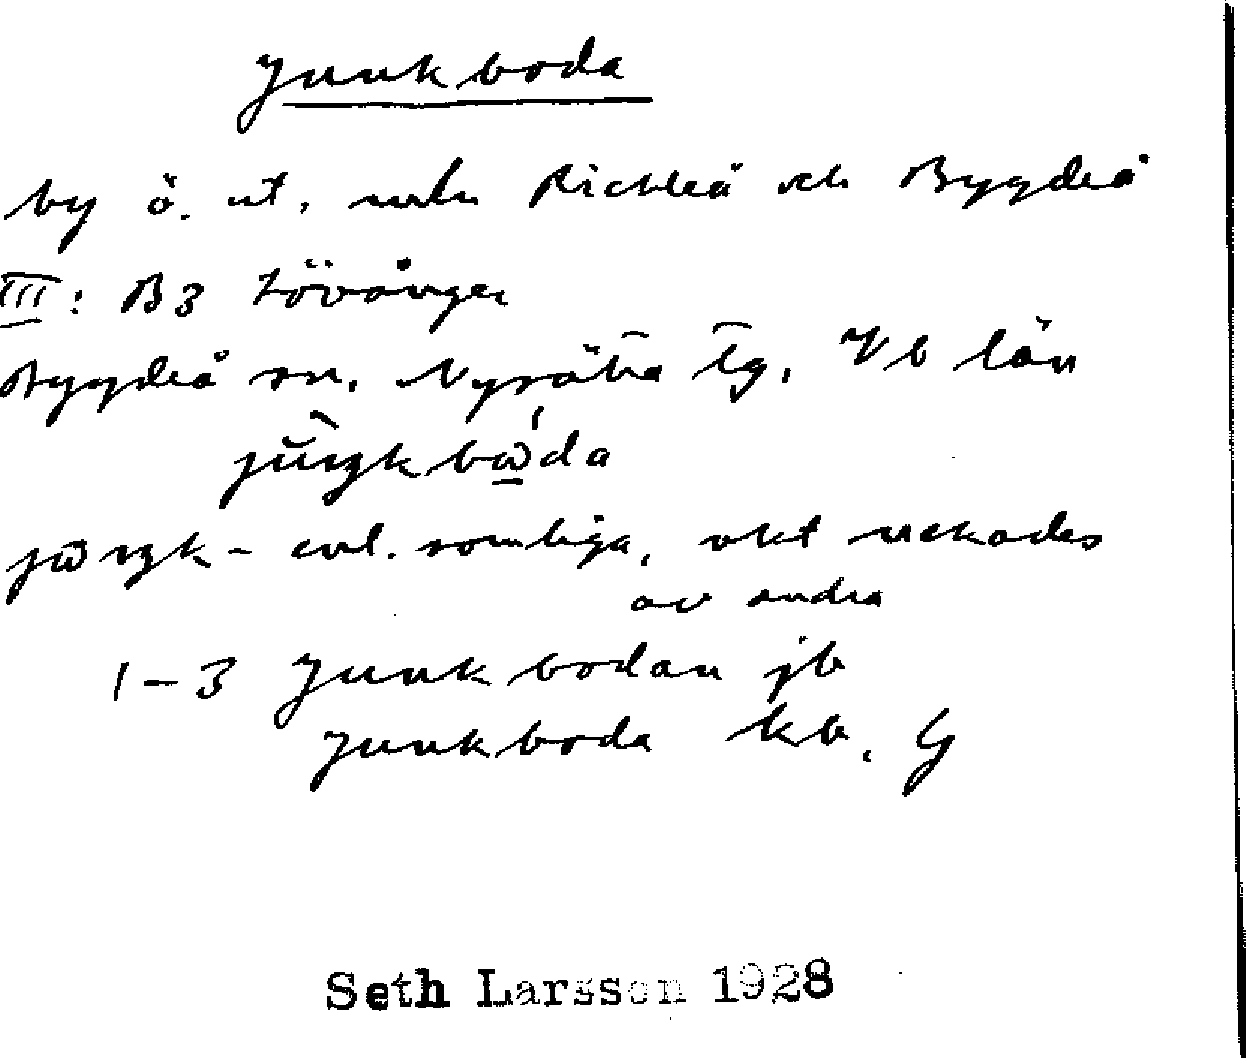 Junkboda
by ö. ut. mln Rickleå och Bygdeå
III: B3 Lövånger
Bygdeå sn. Nysätra tg. Vb län
jŭŋkbὼda
jω̄ŋk- enl. somliga, vkt nekades
av andra
1-3 Junkbodan jb
Junkboda kb, G
Seth Larsson 1928